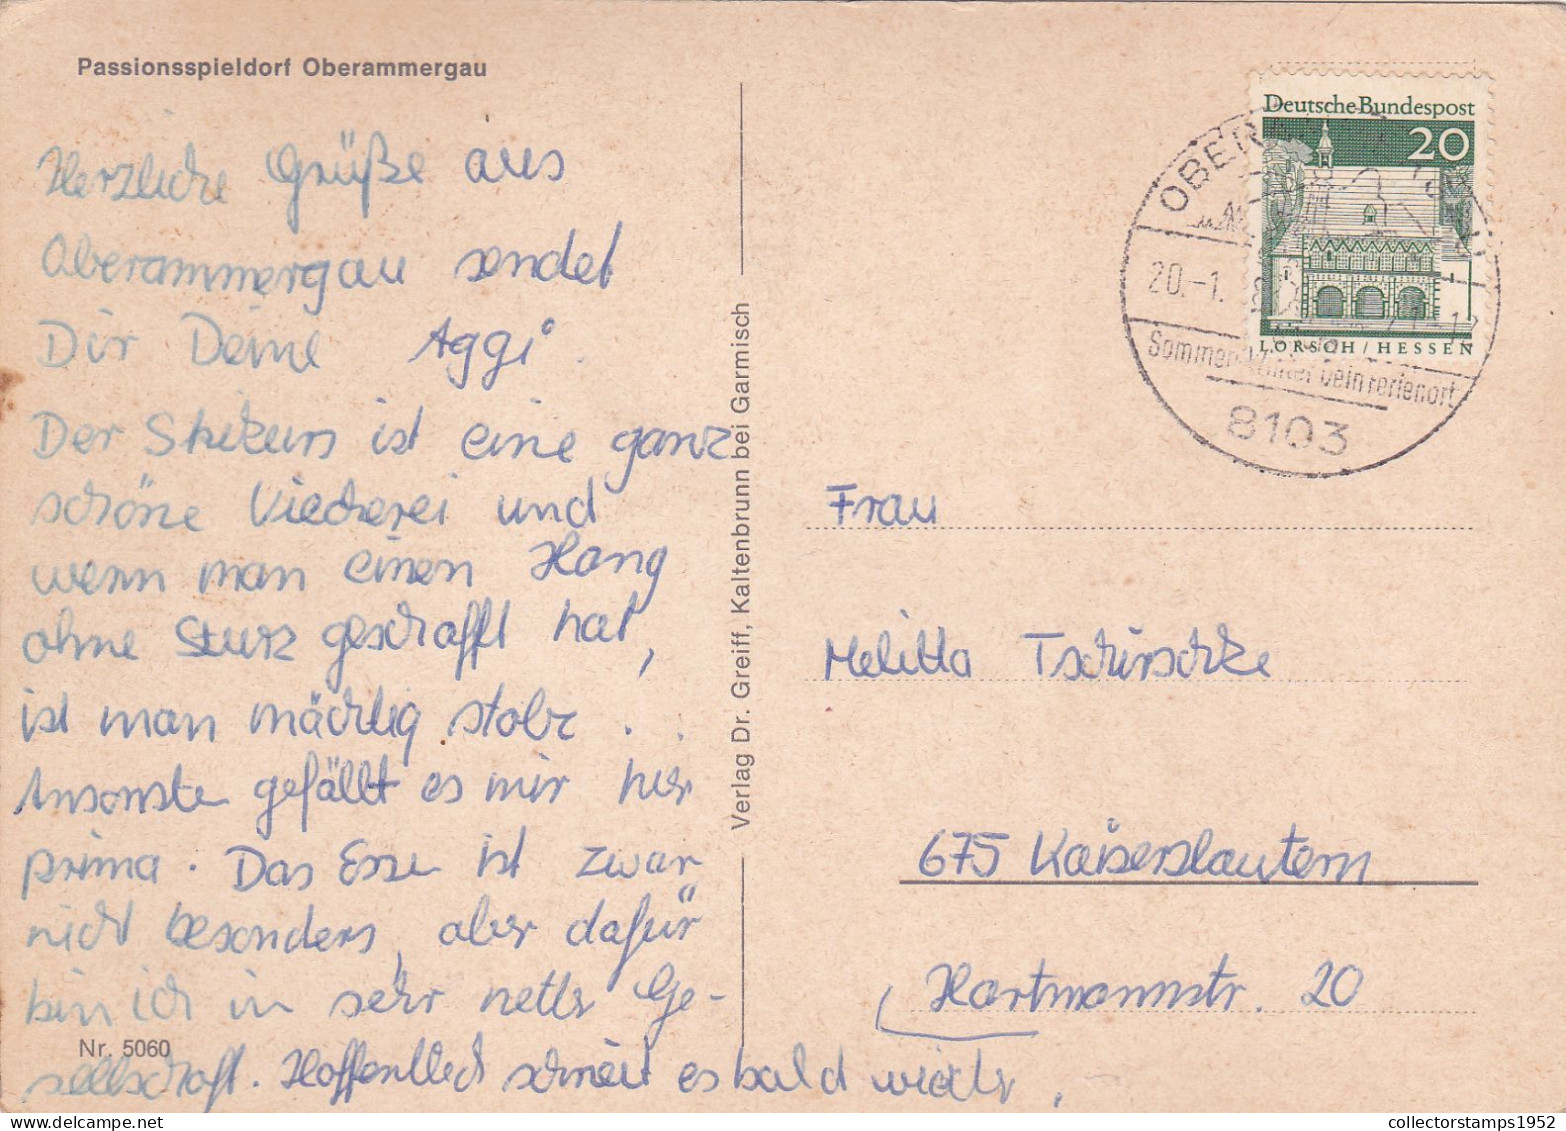 Passionsspieldorf Oberammergau
Herzliche Grüße aus
Oberammergau sendet
Dir Deine Aggi.
Der Skikurs ist eine ganz
schöne Viecherei und
wenn man einen Hang
ohne Sturz geschafft hat,
ist man mächtig stolz.
Ansonsten gefällt es mir hier
prima. Das Essen ist zwar
nicht besonders, aber dafür
bin ich in sehr netter Ge-
sellschaft. Hoffentlich schneit es bald wieder.
Nr. 5060
Verlag Dr. Greiff, Kaltenbrunn bei Garmisch
Deutsche Bundespost
20
LORSCH / HESSEN
OBER
20.-1.
Sommer
dein Ferienort
8103
Frau
Melitta Tschirschke
675 Kaiserslautern
Hartmannstr. 20
collectorstamps1952